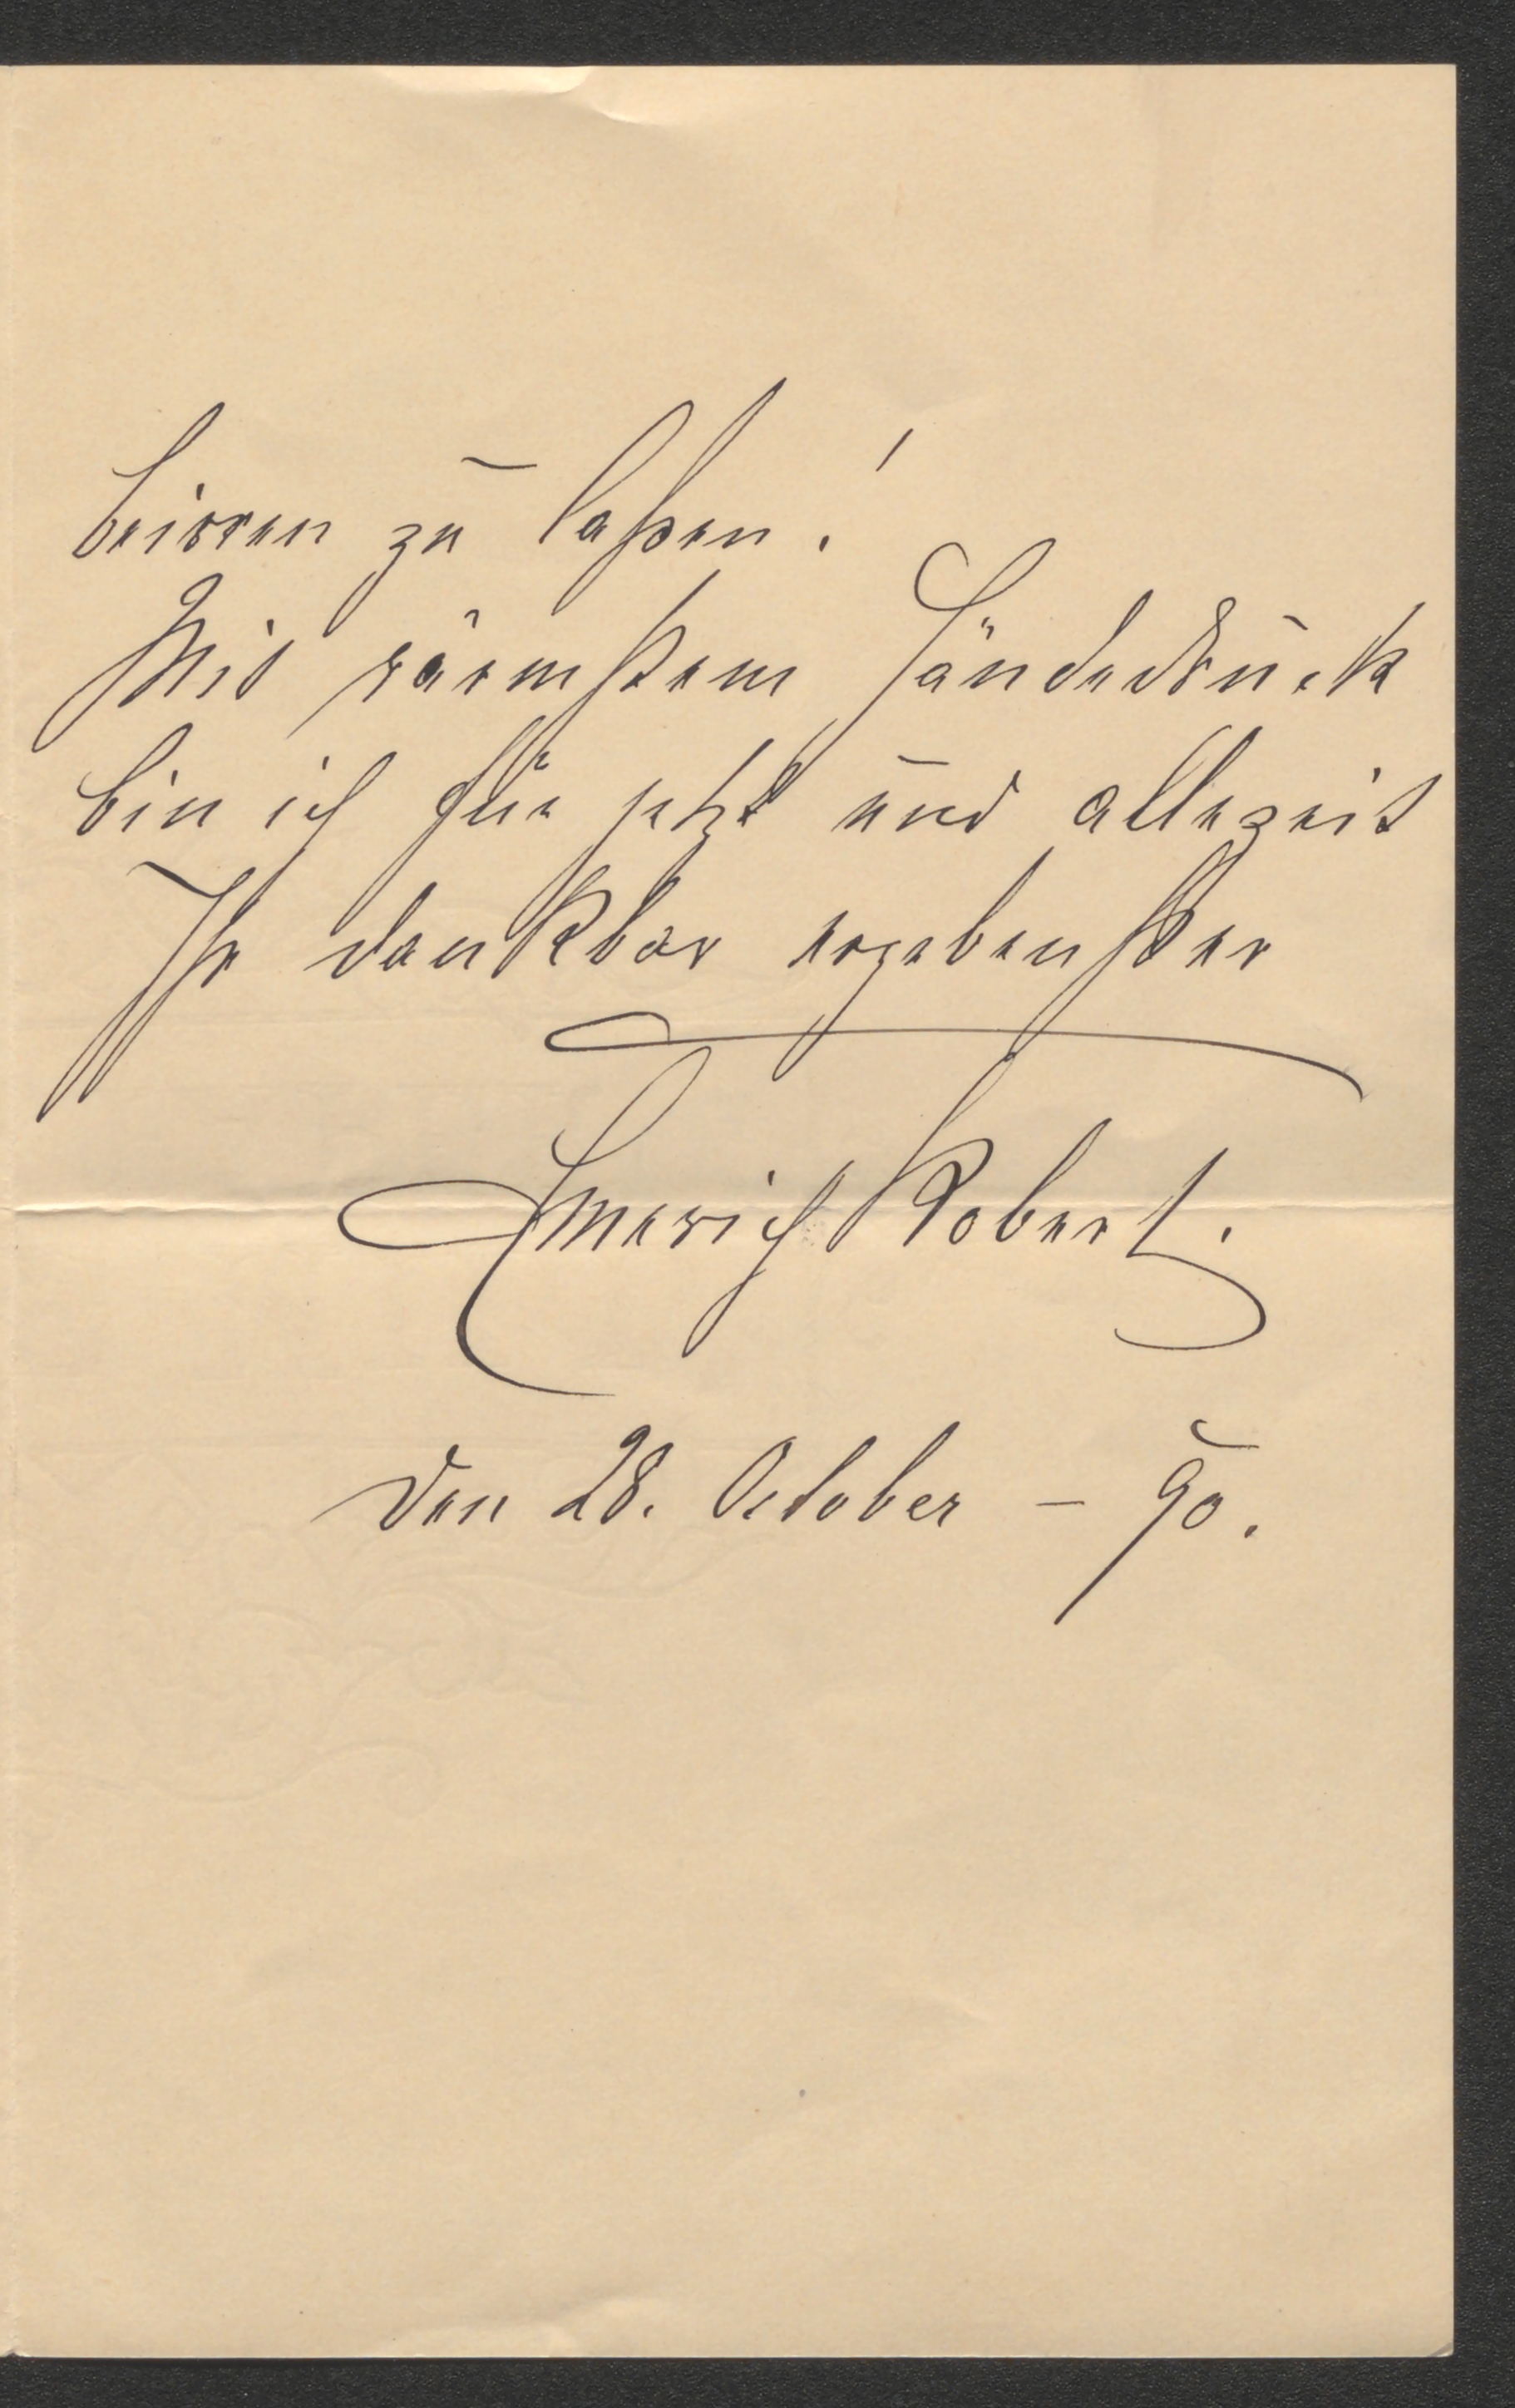 beirren zu laßen!
Mit wärmstem Händedruck
bin ich für jetzt und allezeit
Ihr dankbar ergebenster
Emerich Robert.
den 28. October – 90.